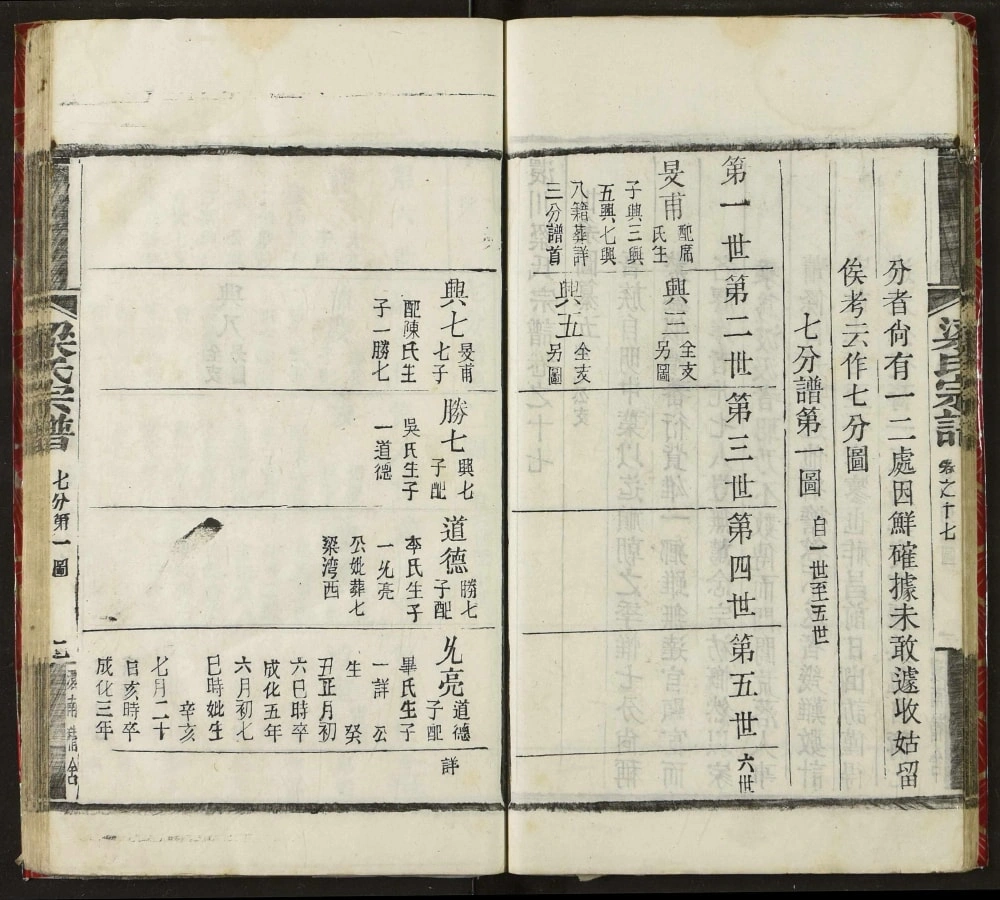 梁氏宗譜
卷之十七
分者尙有一二處因鮮確據未敢遽收姑留
俟考云作七分圖
七分譜第一圖 自一世至五世
第一世 第二世 第三世 第四世 第五世 六世
旻甫 配席
氏生
子興三興
五興七興
八籍葬詳
三分譜首
興三 全支
另圖
興五 全支
另圖
興七 旻甫
七子
配陳氏生
子一勝七
勝七 興七
子配
吳氏生子
一道德
道德 勝七
子配
李氏生子
一允亮
公妣葬七
梁湾西
允亮 道德
子配
畢氏生子
一詳 公
生 癸
丑正月初
六巳時卒
成化五年
六月初七
巳時妣生
辛亥
七月二十
日亥時卒
成化三年
詳
梁氏宗譜
七分第一圖